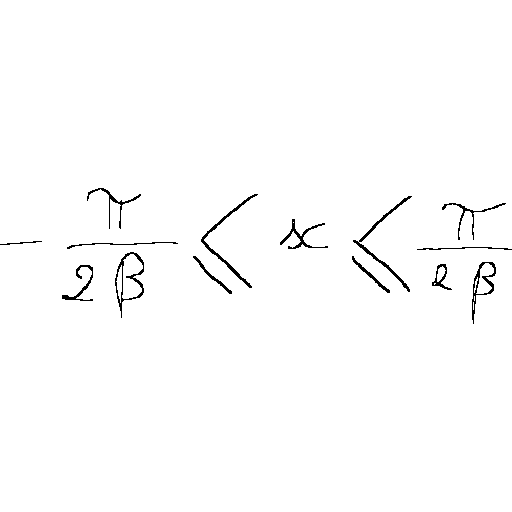 $-\frac{\pi}{2\beta} \leqslant x \leqslant \frac{\pi}{2\beta}$